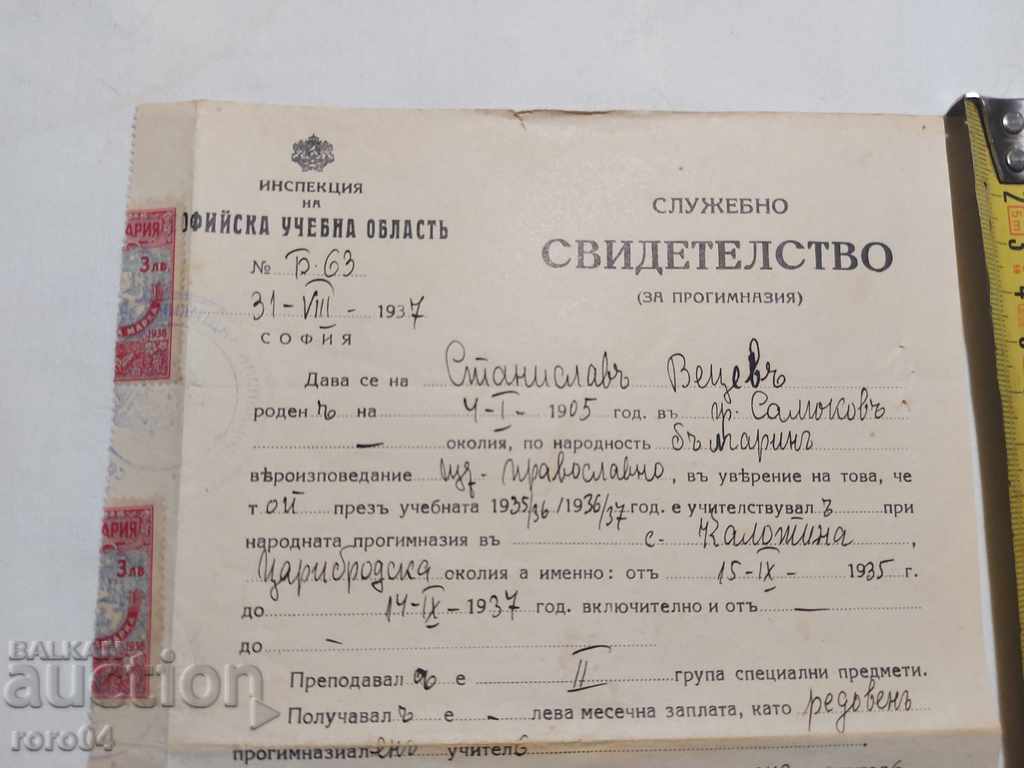 ИНСПЕКЦИЯ
НА
ОФИЙСКА УЧЕБНА ОБЛАСТЬ
№ Б.63
31-VIII- 1937
СОФИЯ
СЛУЖЕБНО
СВИДЕТЕЛСТВО
(ЗА ПРОГИМНАЗИЯ)
Дава се на Станиславъ Вецевъ
роден ъ на 4-I- 1905 год. въ гр. Самоковъ
— околия, по народность българинъ
вѣроизповедание изт-православно, въ уверение на това, че
т ой презъ учебната 1935/36/1936/37 год. е учителствувал ъ при
народната прогимназия въ с. Калотина,
Царибродска околия а именно: отъ 15-IX- 1935 г.
до 14-IX- 1937 год. включително и отъ —
до -
Преподавал е II група специални предмети.
Получавал ъ е - лева месечна заплата, като редовенъ
прогимназиал енъ учител ь
АРИЯ
3 лв
МАРКА
1938
АРИЯ
3 лв
МАРКА
1938
BALKAN
auction
roro04